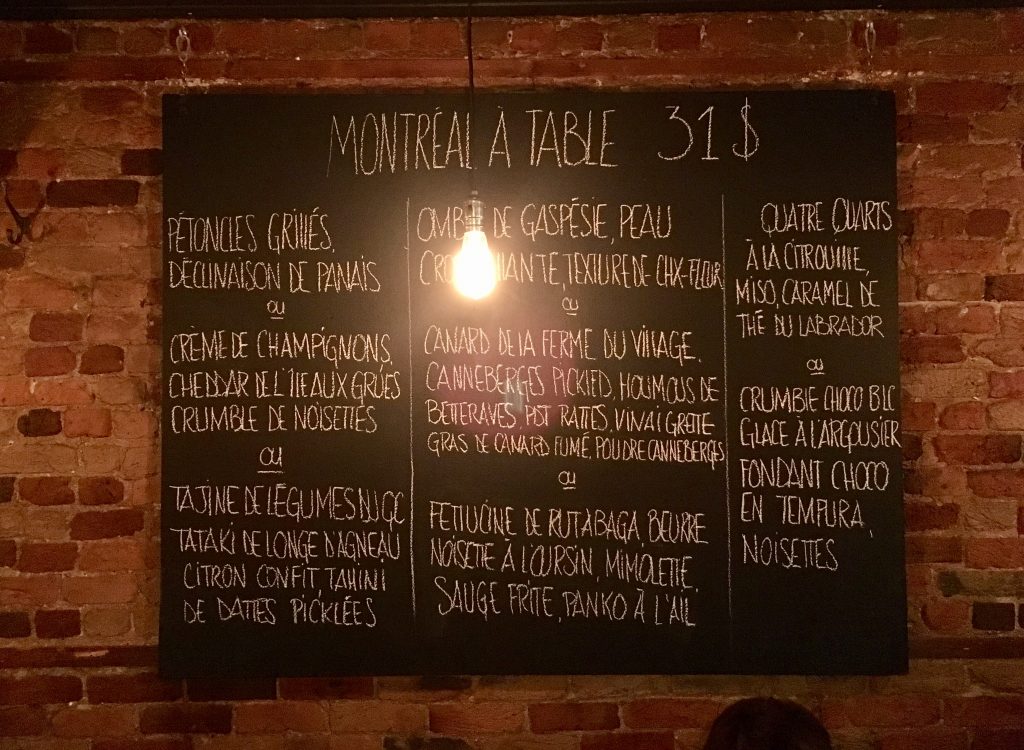 MONTRÉAL À TABLE 31$
PÉTONCLES GRILLÉS,
DÉCLINAISON DE PANAIS
ou
CRÈME DE CHAMPIGNONS,
CHEDDAR DE L'ÎLE AUX GRUES
CRUMBLE DE NOISETTES
ou
TAJINE DE LÉGUMES DU QC
TATAKI DE LONGE D'AGNEAU
CITRON CONFIT TAHINI
DE DATTES PICKLÉES
DE GASPÉSIE, PEAU
TEXTURE DE CHX-FLEUR
ou
CANARD DE LA FERME DU VILLAGE,
CANNEBERGES PICKLED, HOUMOUS DE
BETTERAVES, PDT RATTES, VINAIGRETTE
GRAS DE CANARD FUMÉ, POUDRE CANNEBERGES
ou
FETTUCINE DE RUTABAGA, BEURRE
NOISETTE À L'OURSIN, MIMOLETTE,
SAUGE FRITE, PANKO À L'AIL
QUATRE QUARTS
À LA CITROUILLE,
MISO, CARAMEL DE
THÉ DU LABRADOR
ou
CRUMBLE CHOCO BLC
GLACE À L'ARGOUSIER
FONDANT CHOCO
EN TEMPURA,
NOISETTES